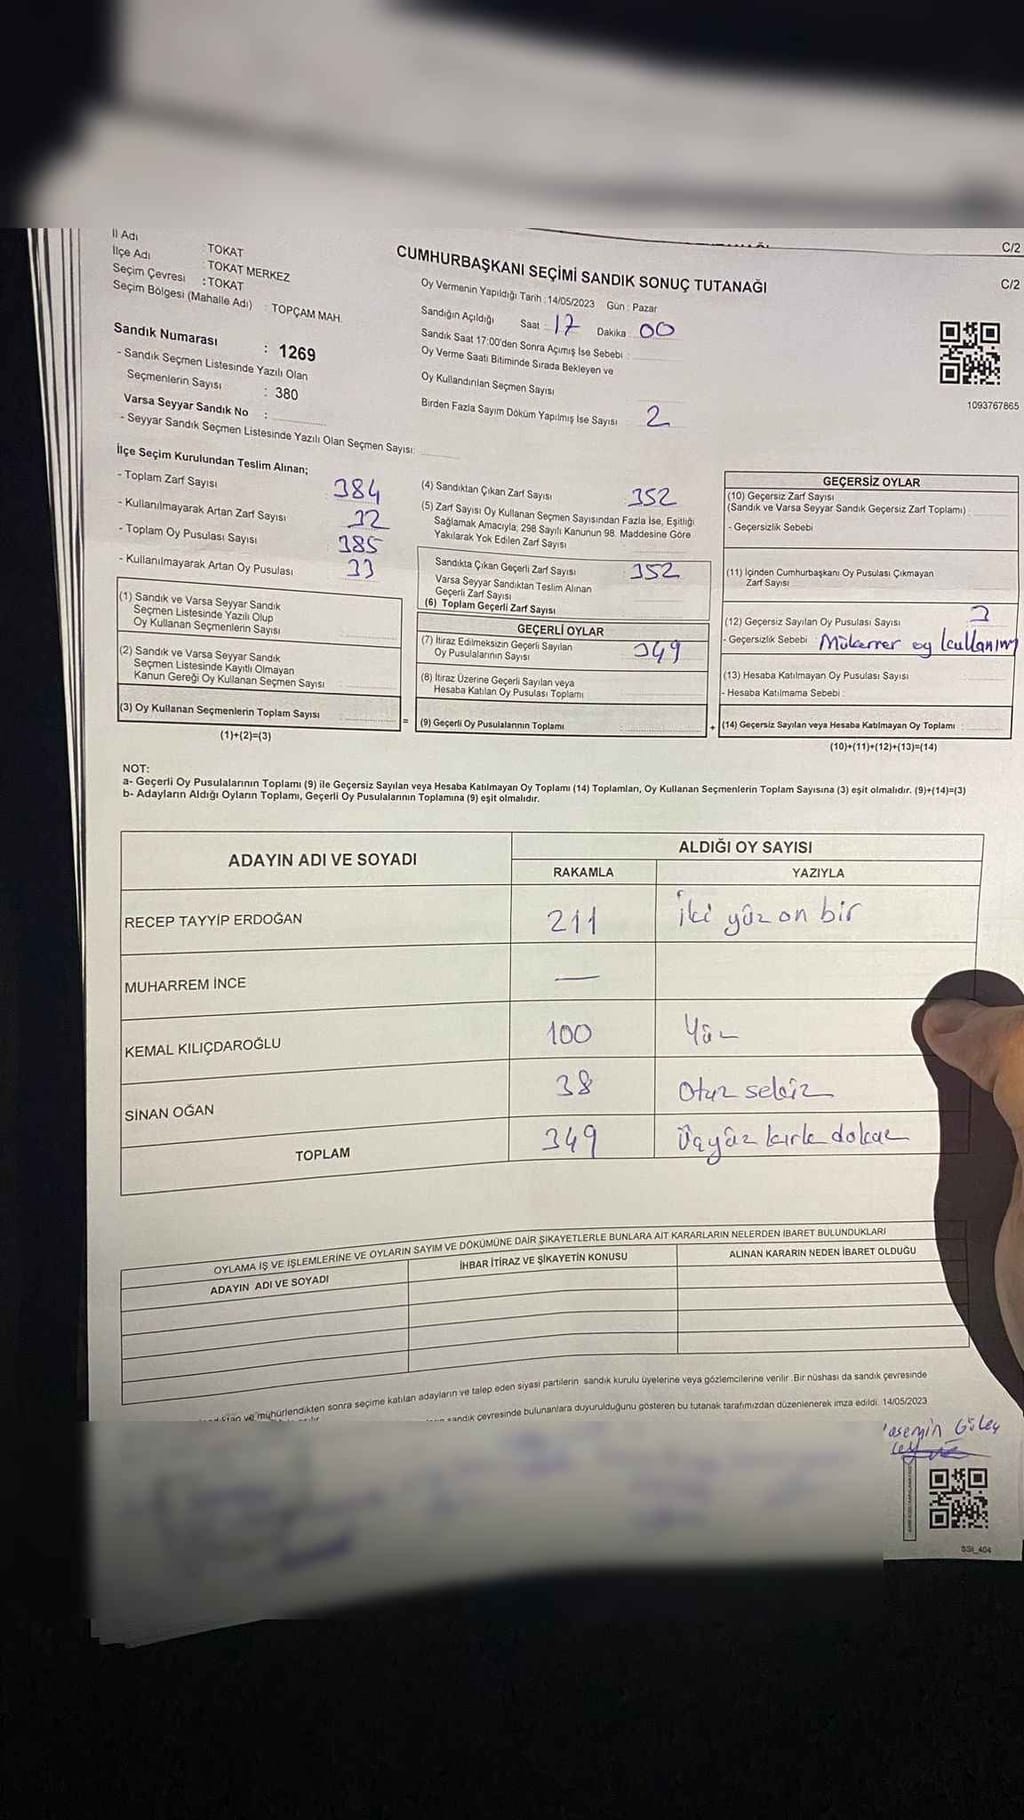 C/2
İl Adı : TOKAT
İlçe Adı : TOKAT MERKEZ
Seçim Çevresi : TOKAT
Seçim Bölgesi (Mahalle Adı) : TOPÇAM MAH.
Sandık Numarası : 1269
- Sandık Seçmen Listesinde Yazılı Olan
Seçmenlerin Sayısı : 380
Varsa Seyyar Sandık No :
- Seyyar Sandık Seçmen Listesinde Yazılı Olan Seçmen Sayısı:
CUMHURBAŞKANI SEÇİMİ SANDIK SONUÇ TUTANAĞI
Oy Vermenin Yapıldığı Tarih : 14/05/2023 Gün : Pazar
Sandığın Açıldığı Saat 17 Dakika 00
Sandık Saat 17:00'den Sonra Açımış İse Sebebi :
Oy Verme Saati Bitiminde Sırada Bekleyen ve
Oy Kullandırılan Seçmen Sayısı
Birden Fazla Sayım Döküm Yapılmış İse Sayısı 2
C/2
1093767865
İlçe Seçim Kurulundan Teslim Alınan;
- Toplam Zarf Sayısı 384
- Kullanılmayarak Artan Zarf Sayısı 32
- Toplam Oy Pusulası Sayısı 385
- Kullanılmayarak Artan Oy Pusulası 33
(1) Sandık ve Varsa Seyyar Sandık
Seçmen Listesinde Yazılı Olup
Oy Kullanan Seçmenlerin Sayısı
(2) Sandık ve Varsa Seyyar Sandık
Seçmen Listesinde Kayıtlı Olmayan
Kanun Gereği Oy Kullanan Seçmen Sayısı
(3) Oy Kullanan Seçmenlerin Toplam Sayısı
(1)+(2)=(3)
=
(4) Sandıktan Çıkan Zarf Sayısı 352
(5) Zarf Sayısı Oy Kullanan Seçmen Sayısından Fazla İse, Eşitliği
Sağlamak Amacıyla; 298 Sayılı Kanunun 98. Maddesine Göre
Yakılarak Yok Edilen Zarf Sayısı
Sandıkta Çıkan Geçerli Zarf Sayısı 352
Varsa Seyyar Sandıktan Teslim Alınan
Geçerli Zarf Sayısı
(6) Toplam Geçerli Zarf Sayısı
GEÇERLİ OYLAR
(7) İtiraz Edilmeksizin Geçerli Sayılan
Oy Pusulalarının Sayısı 349
(8) İtiraz Üzerine Geçerli Sayılan veya
Hesaba Katılan Oy Pusulası Toplamı
(9) Geçerli Oy Pusulalarının Toplamı
+
GEÇERSİZ OYLAR
(10) Geçersiz Zarf Sayısı
(Sandık ve Varsa Seyyar Sandık Geçersiz Zarf Toplamı)
- Geçersizlik Sebebi
(11) İçinden Cumhurbaşkanı Oy Pusulası Çıkmayan
Zarf Sayısı
(12) Geçersiz Sayılan Oy Pusulası Sayısı 3
- Geçersizlik Sebebi Mükerrer oy kullanım
(13) Hesaba Katılmayan Oy Pusulası Sayısı
- Hesaba Katılmama Sebebi :
(14) Geçersiz Sayılan veya Hesaba Katılmayan Oy Toplamı :
(10)+(11)+(12)+(13)=(14)
NOT:
a- Geçerli Oy Pusulalarının Toplamı (9) ile Geçersiz Sayılan veya Hesaba Katılmayan Oy Toplamı (14) Toplamları, Oy Kullanan Seçmenlerin Toplam Sayısına (3) eşit olmalıdır. (9)+(14)=(3)
b- Adayların Aldığı Oyların Toplamı, Geçerli Oy Pusulalarının Toplamına (9) eşit olmalıdır.
ADAYIN ADI VE SOYADI
ALDIĞI OY SAYISI
RAKAMLA YAZIYLA
RECEP TAYYİP ERDOĞAN 211 İki yüz on bir
MUHARREM İNCE —
KEMAL KILIÇDAROĞLU 100 Yüz
SİNAN OĞAN 38 Otuz sekiz
TOPLAM 349 Üçyüz kırk dokuz
OYLAMA İŞ VE İŞLEMLERİNE VE OYLARIN SAYIM VE DÖKÜMÜNE DAİR ŞİKAYETLERLE BUNLARA AİT KARARLARIN NELERDEN İBARET BULUNDUKLARI
ADAYIN ADI VE SOYADI İHBAR İTİRAZ VE ŞİKAYETİN KONUSU ALINAN KARARIN NEDEN İBARET OLDUĞU
ve mühürlendikten sonra seçime katılan adayların ve talep eden siyasi partilerin sandık kurulu üyelerine veya gözlemcilerine verilir. Bir nüshası da sandık çevresinde
sandık çevresinde bulunanlara duyurulduğunu gösteren bu tutanak tarafımızdan düzenlenerek imza edildi. 14/05/2023